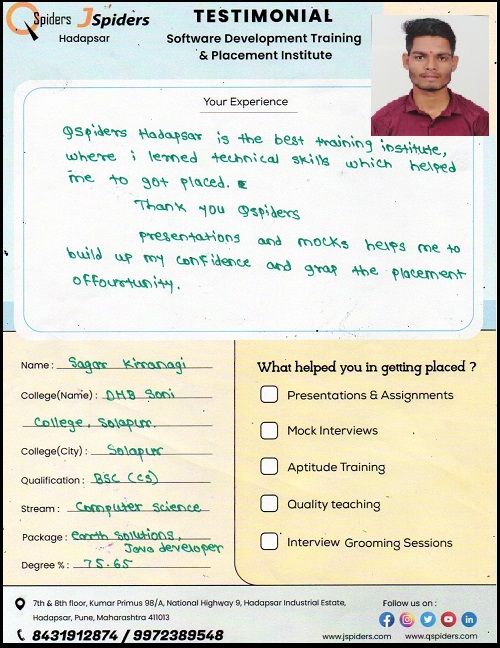 QSpiders JSpiders
Hadapsar
TESTIMONIAL
Software Development Training
& Placement Institute
Your Experience
QSpiders Hadapsar is the best training institute,
where i lerned technical skills which helped
me to got placed.
Thank you QSpiders
presentations and mocks helps me to
build up my confidence and grap the placement
offourtunity.
Name : Sagar Kirranagi
College(Name) : DHB Soni
College, Solapur.
College(City) : Solapur
Qualification : BSC (CS)
Stream : Computer Science
Package : earth solutions,
Java developer
Degree % : 75.65
What helped you in getting placed ?
Presentations & Assignments
Mock Interviews
Aptitude Training
Quality teaching
Interview Grooming Sessions
7th & 8th floor, Kumar Primus 98/A, National Highway 9, Hadapsar Industrial Estate,
Hadapsar, Pune, Maharashtra 411013
8431912874 / 9972389548
Follow us on :
www.jspiders.com www.qspiders.com